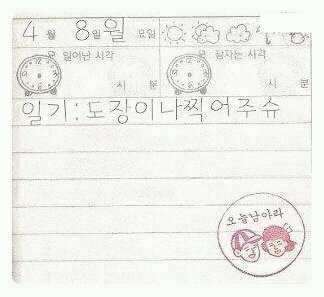 4월 8월 요일
일어난 시각 잠자는 시각
시 분 시 분
일기:도장이나찍어주슈
오늘남아라